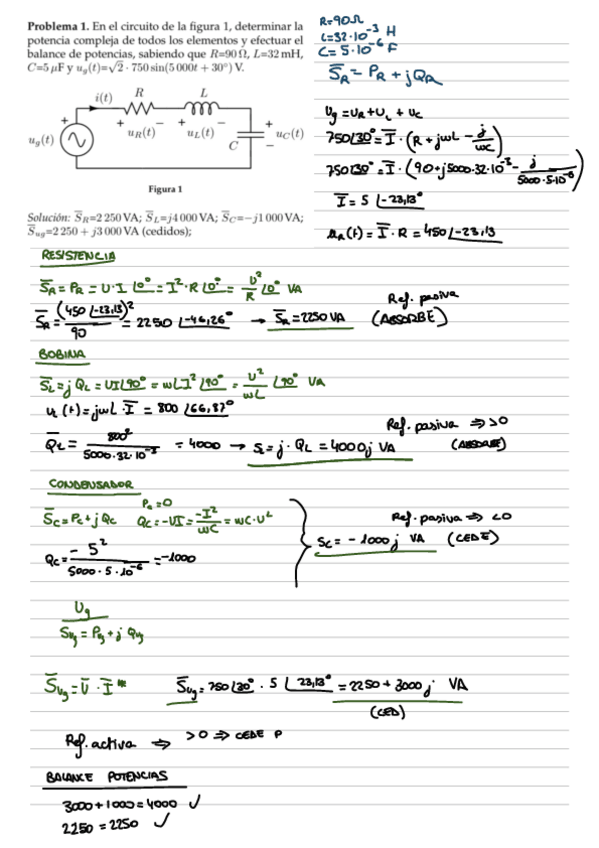 Problema 1. En el circuito de la figura 1, determinar la
potencia compleja de todos los elementos y efectuar el
balance de potencias, sabiendo que R=90 Ω, L=32 mH,
C=5 μF y u_g(t)=√2 · 750 sin(5 000t + 30°) V.
i(t) R L
+ − + −
u_g(t) u_R(t) u_L(t) C u_C(t)
Figura 1
Solución: S̅_R=2 250 VA; S̅_L=j4 000 VA; S̅_C=−j1 000 VA;
S̅_ug=2 250 + j3 000 VA (cedidos);
R=90Ω
L=32·10^-3 H
C=5·10^-6 F
S̅_R = P_R + jQ_R
U_g = U_R + U_L + U_C
750∠30° = I̅ · (R + jωL − j/ωC)
750∠30° = I̅ · (90 + j5000·32·10^-3 − j/5000·5·10^-6)
I̅ = 5 ∠-23,13°
u_R(t) = I̅ · R = 450 ∠-23,13
RESISTENCIA
S̅_R = P_R = U·I ∠0° = I²·R ∠0° = U²/R ∠0° VA
S̅_R = (450 ∠-23,13)²/90 = 2250 ∠-46,26° → S̅_R = 2250 VA
Ref. pasiva
(ABSORBE)
BOBINA
S̅_L = j Q_L = UI∠90° = ωLI² ∠90° = U²/ωL ∠90° VA
u_L(t) = jωL · I̅ = 800 ∠66,87°
Q̅_L = 800²/5000·32·10^-3 = 4000 → S_L = j · Q_L = 4000j VA
Ref. pasiva ⇒ >0
(ABSORBE)
CONDENSADOR
P_C = 0
S̅_C = P_C + j Q_C Q_C = −UI = −I²/ωC = ωC·U²
Q_C = − 5²/5000·5·10^-6 = −1000
S_C = − 1000 j VA
Ref. pasiva ⇒ <0
(CEDE)
U_g
S_ug = P_g + j Q_ug
S̅_ug = U̅ · I̅* S̅_ug = 750∠30° · 5 ∠23,13° = 2250 + 3000 j VA
(CED)
Ref. activa ⇒ >0 ⇒ CEDE P
BALANCE POTENCIAS
3000 + 1000 = 4000 ✓
2250 = 2250 ✓